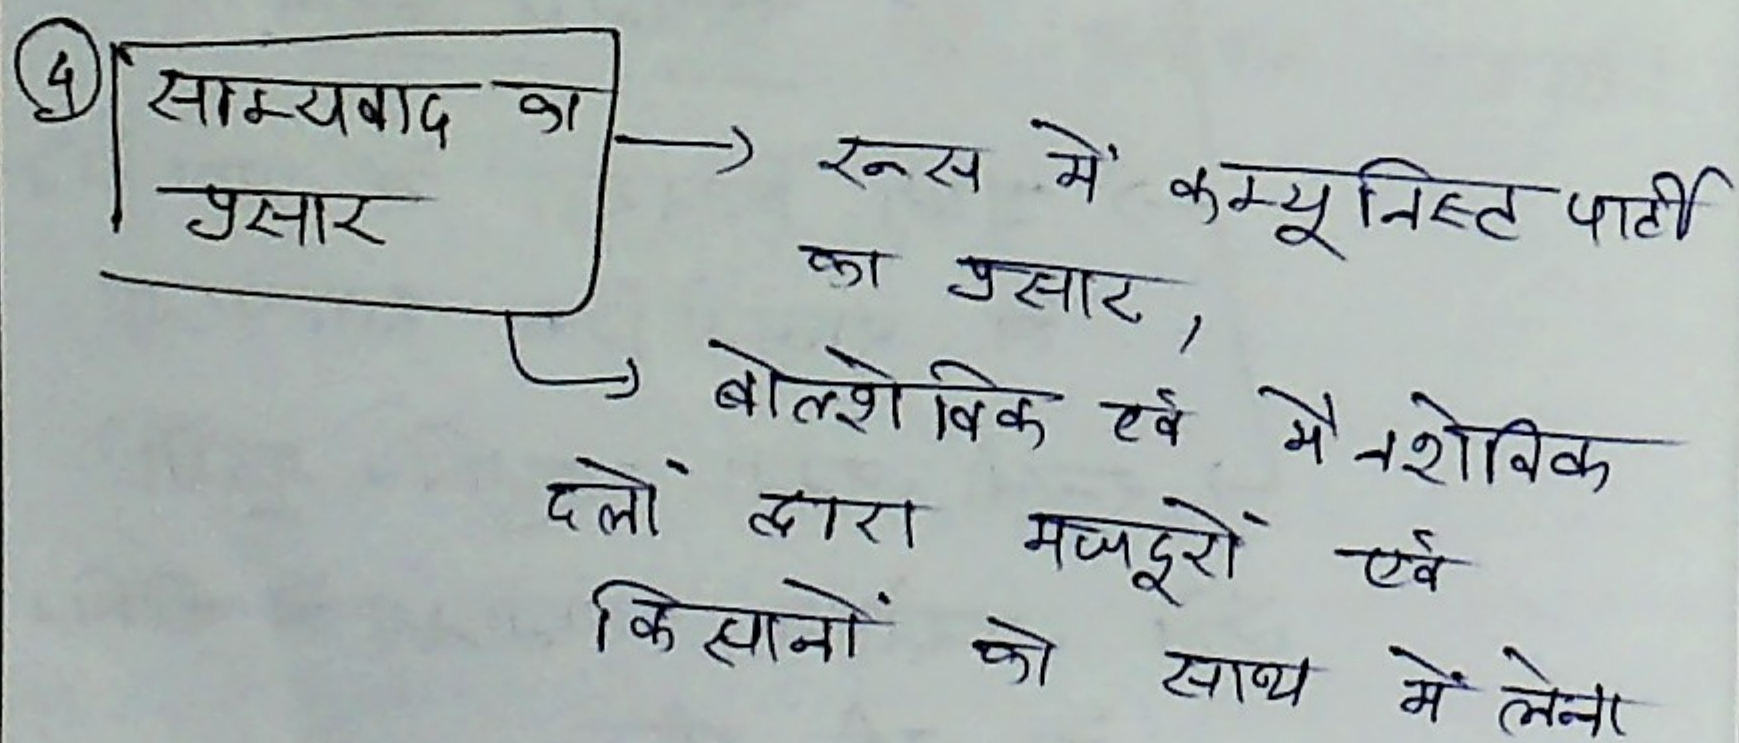 ④ साम्यवाद का
प्रसार
→ रूस में कम्यूनिस्ट पार्टी
का प्रसार,
→ बोल्शेविक एवं मेनशेविक
दलों द्वारा मजदूरों एवं
किसानों को साथ में लेना